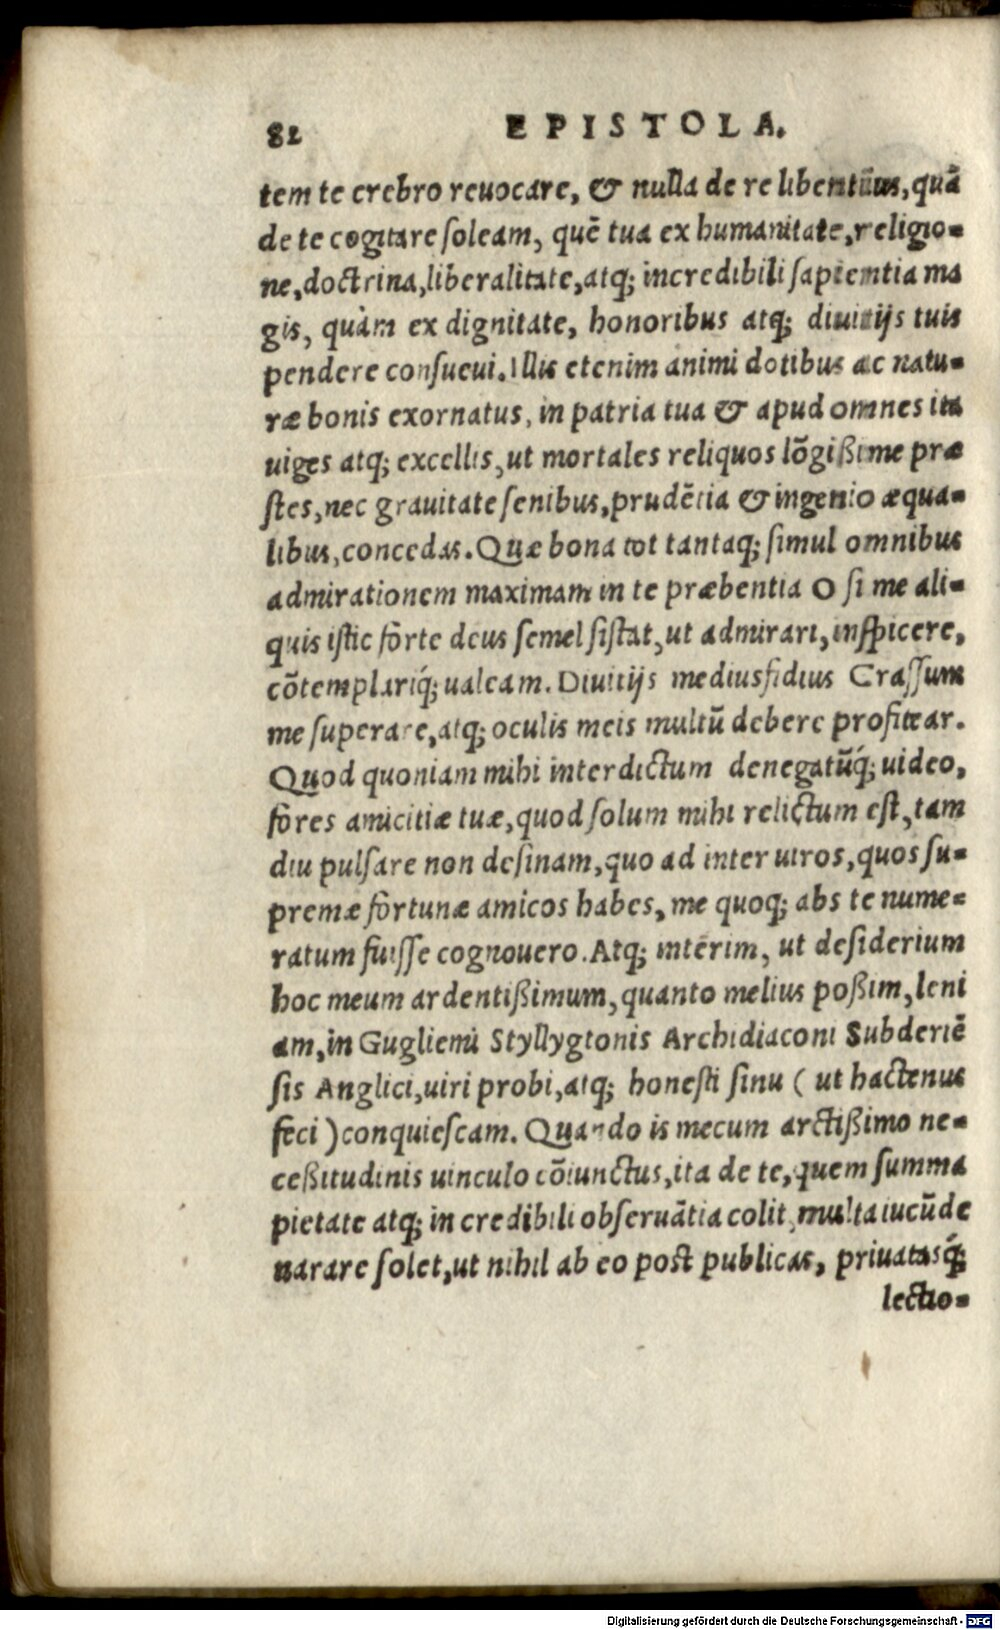 82 EPISTOLA.
tem te crebro reuocare, & nulla de re libentiùs, quā
de te cogitare soleam, quē tua ex humanitate, religio=
ne, doctrina, liberalitate, atq; incredibili sapientia ma
gis, quàm ex dignitate, honoribus atq; diuitijs tuis
pendere consueui. Illis etenim animi dotibus ac natu=
ræ bonis exornatus, in patria tua & apud omnes ita
uiges atq; excellis, ut mortales reliquos lōgißime præ
stes, nec grauitate senibus, prudētia & ingenio æqua=
libus, concedas. Quæ bona tot tantaq; simul omnibus
admirationem maximam in te præbentia O si me ali=
quis istic forte deus semel sistat, ut admirari, inspicere,
cōtemplariq́; ualeam. Diuitijs mediusfidius Crassum
me superare, atq; oculis meis multū debere profitear.
Quod quoniam mihi interdictum denegatūq́; uideo,
fores amicitiæ tuæ, quod solum mihi relictum est, tam
diu pulsare non desinam, quo ad inter uiros, quos su=
premæ fortunæ amicos habes, me quoq; abs te nume=
ratum fuisse cognouero. Atq; interim, ut desiderium
hoc meum ardentißimum, quanto melius poßim, leni
am, in Gugliemi Styllygtonis Archidiaconi Subderiē
sis Anglici, uiri probi, atq; honesti sinu ( ut hactenus
feci ) conquiescam. Quando is mecum arctißimo ne=
ceßitudinis uinculo cōiunctus, ita de te, quem summa
pietate atq; incredibili obseruātia colit, multa iucūde
narare solet, ut nihil ab eo post publicas, priuatasq́;
lectio=
Digitalisierung gefördert durch die Deutsche Forschungsgemeinschaft - DFG